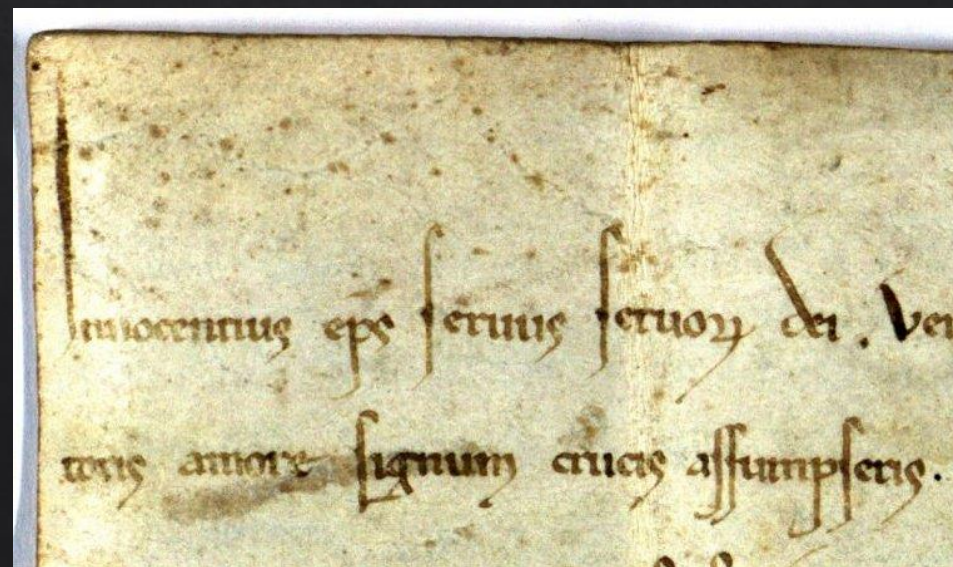 Innocentius eps servus servoꝝ dei . Ven
toris amore signum crucis assumpseris .